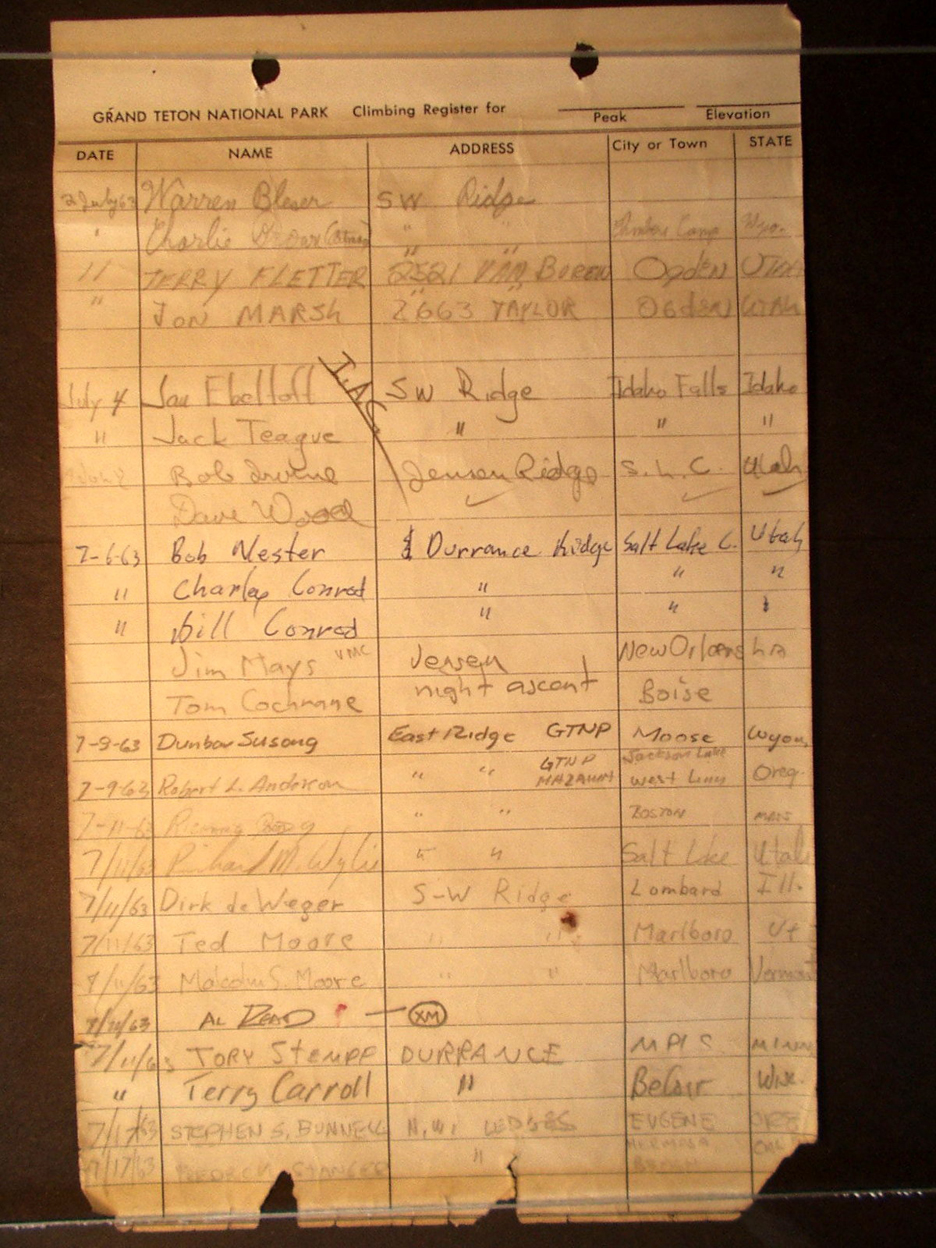 GRAND TETON NATIONAL PARK Climbing Register for
Peak Elevation
DATE NAME ADDRESS City or Town STATE
2 July 63 Warren Bleser SW Ridge
" Charlie " " Camp Wyo.
11 TERRY FLETTER 2521 VAN BUREN Ogden UTAH
" JON MARSH 2663 TAYLOR Ogden UTAH
I.A.C.
July 4 SW Ridge Idaho Falls Idaho
" Jack Teague " " "
Bob Irvine Jensen Ridge S.L.C. Utah
Dave Wood
7-6-63 Bob Nester Durrance Ridge Salt Lake C. Utah
" Charley Conrad " " "
" Bill Conrad " "
Jim Mays VMC Jensen New Orleans La
Tom Cochrane night ascent Boise
7-9-63 Dunbar Susong East Ridge GTNP Moose Wyom
Jackson Lake
7-9-63 Robert L. Anderson " " GTNP MAZAMA West Linn Oreg
7-11-63 " " BOSTON MASS
7/11/63 M. Wylie " " Salt Lke Utah
7/11/63 Dirk de Weger S-W Ridge Lombard Ill.
7/11/63 Ted Moore " " Marlboro Vt
7/11/63 Malcolm S. Moore " " Marlboro Vermont
AL READ — XM
7/11/63 TORY STEMPF DURRANCE MPLS MINN
" Terry Carroll " Beloit Wisc
7/17/63 STEPHEN S. BUNNELL N.W. LEDGES EUGENE ORE
7/17/63 STANGER " HERMOSA BEACH CAL